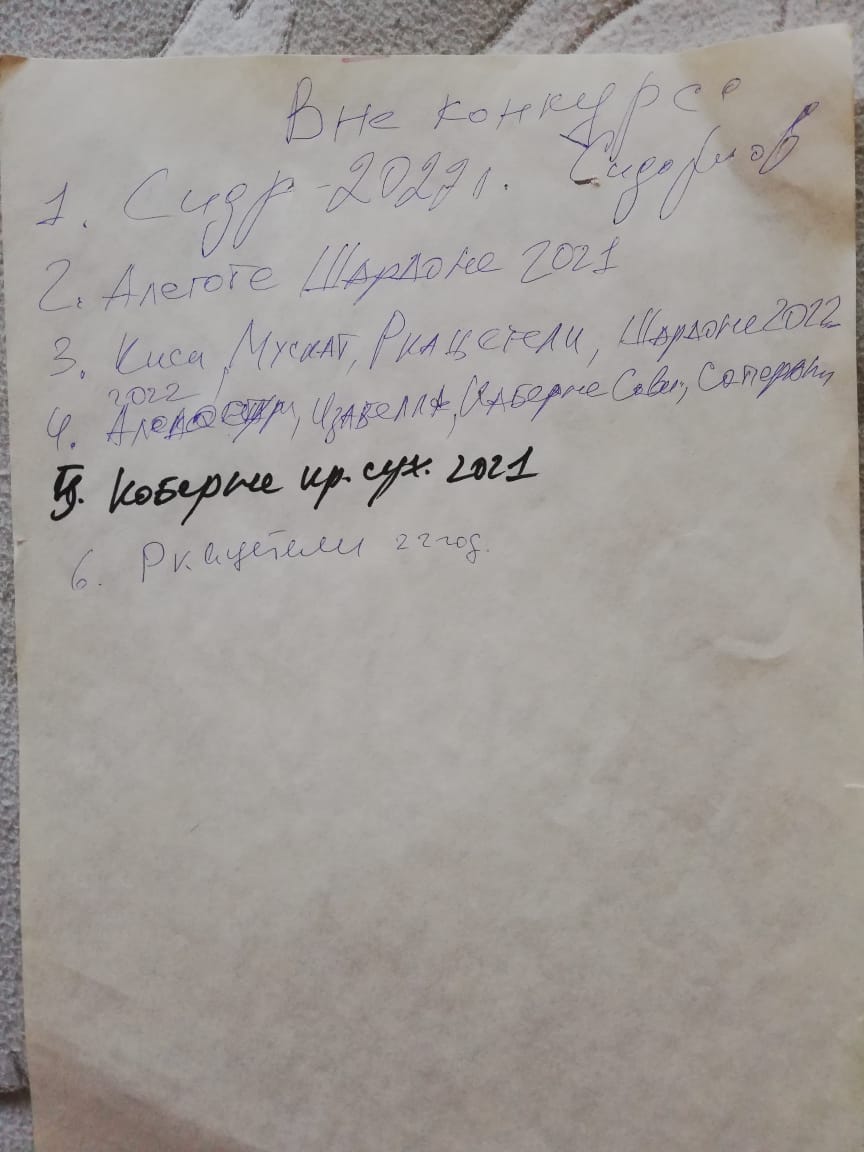 Вне конкурса
1. Сидр - 2022г.
2. Алеготе Шардоне 2021
3. Киси, Мускат, Ркацетели, Шардоне 2022
2022
4. Изабелла, Каберне Сови, Саперави
5. Коберне кр. сух. 2021
6. Ркацетели 22 год.